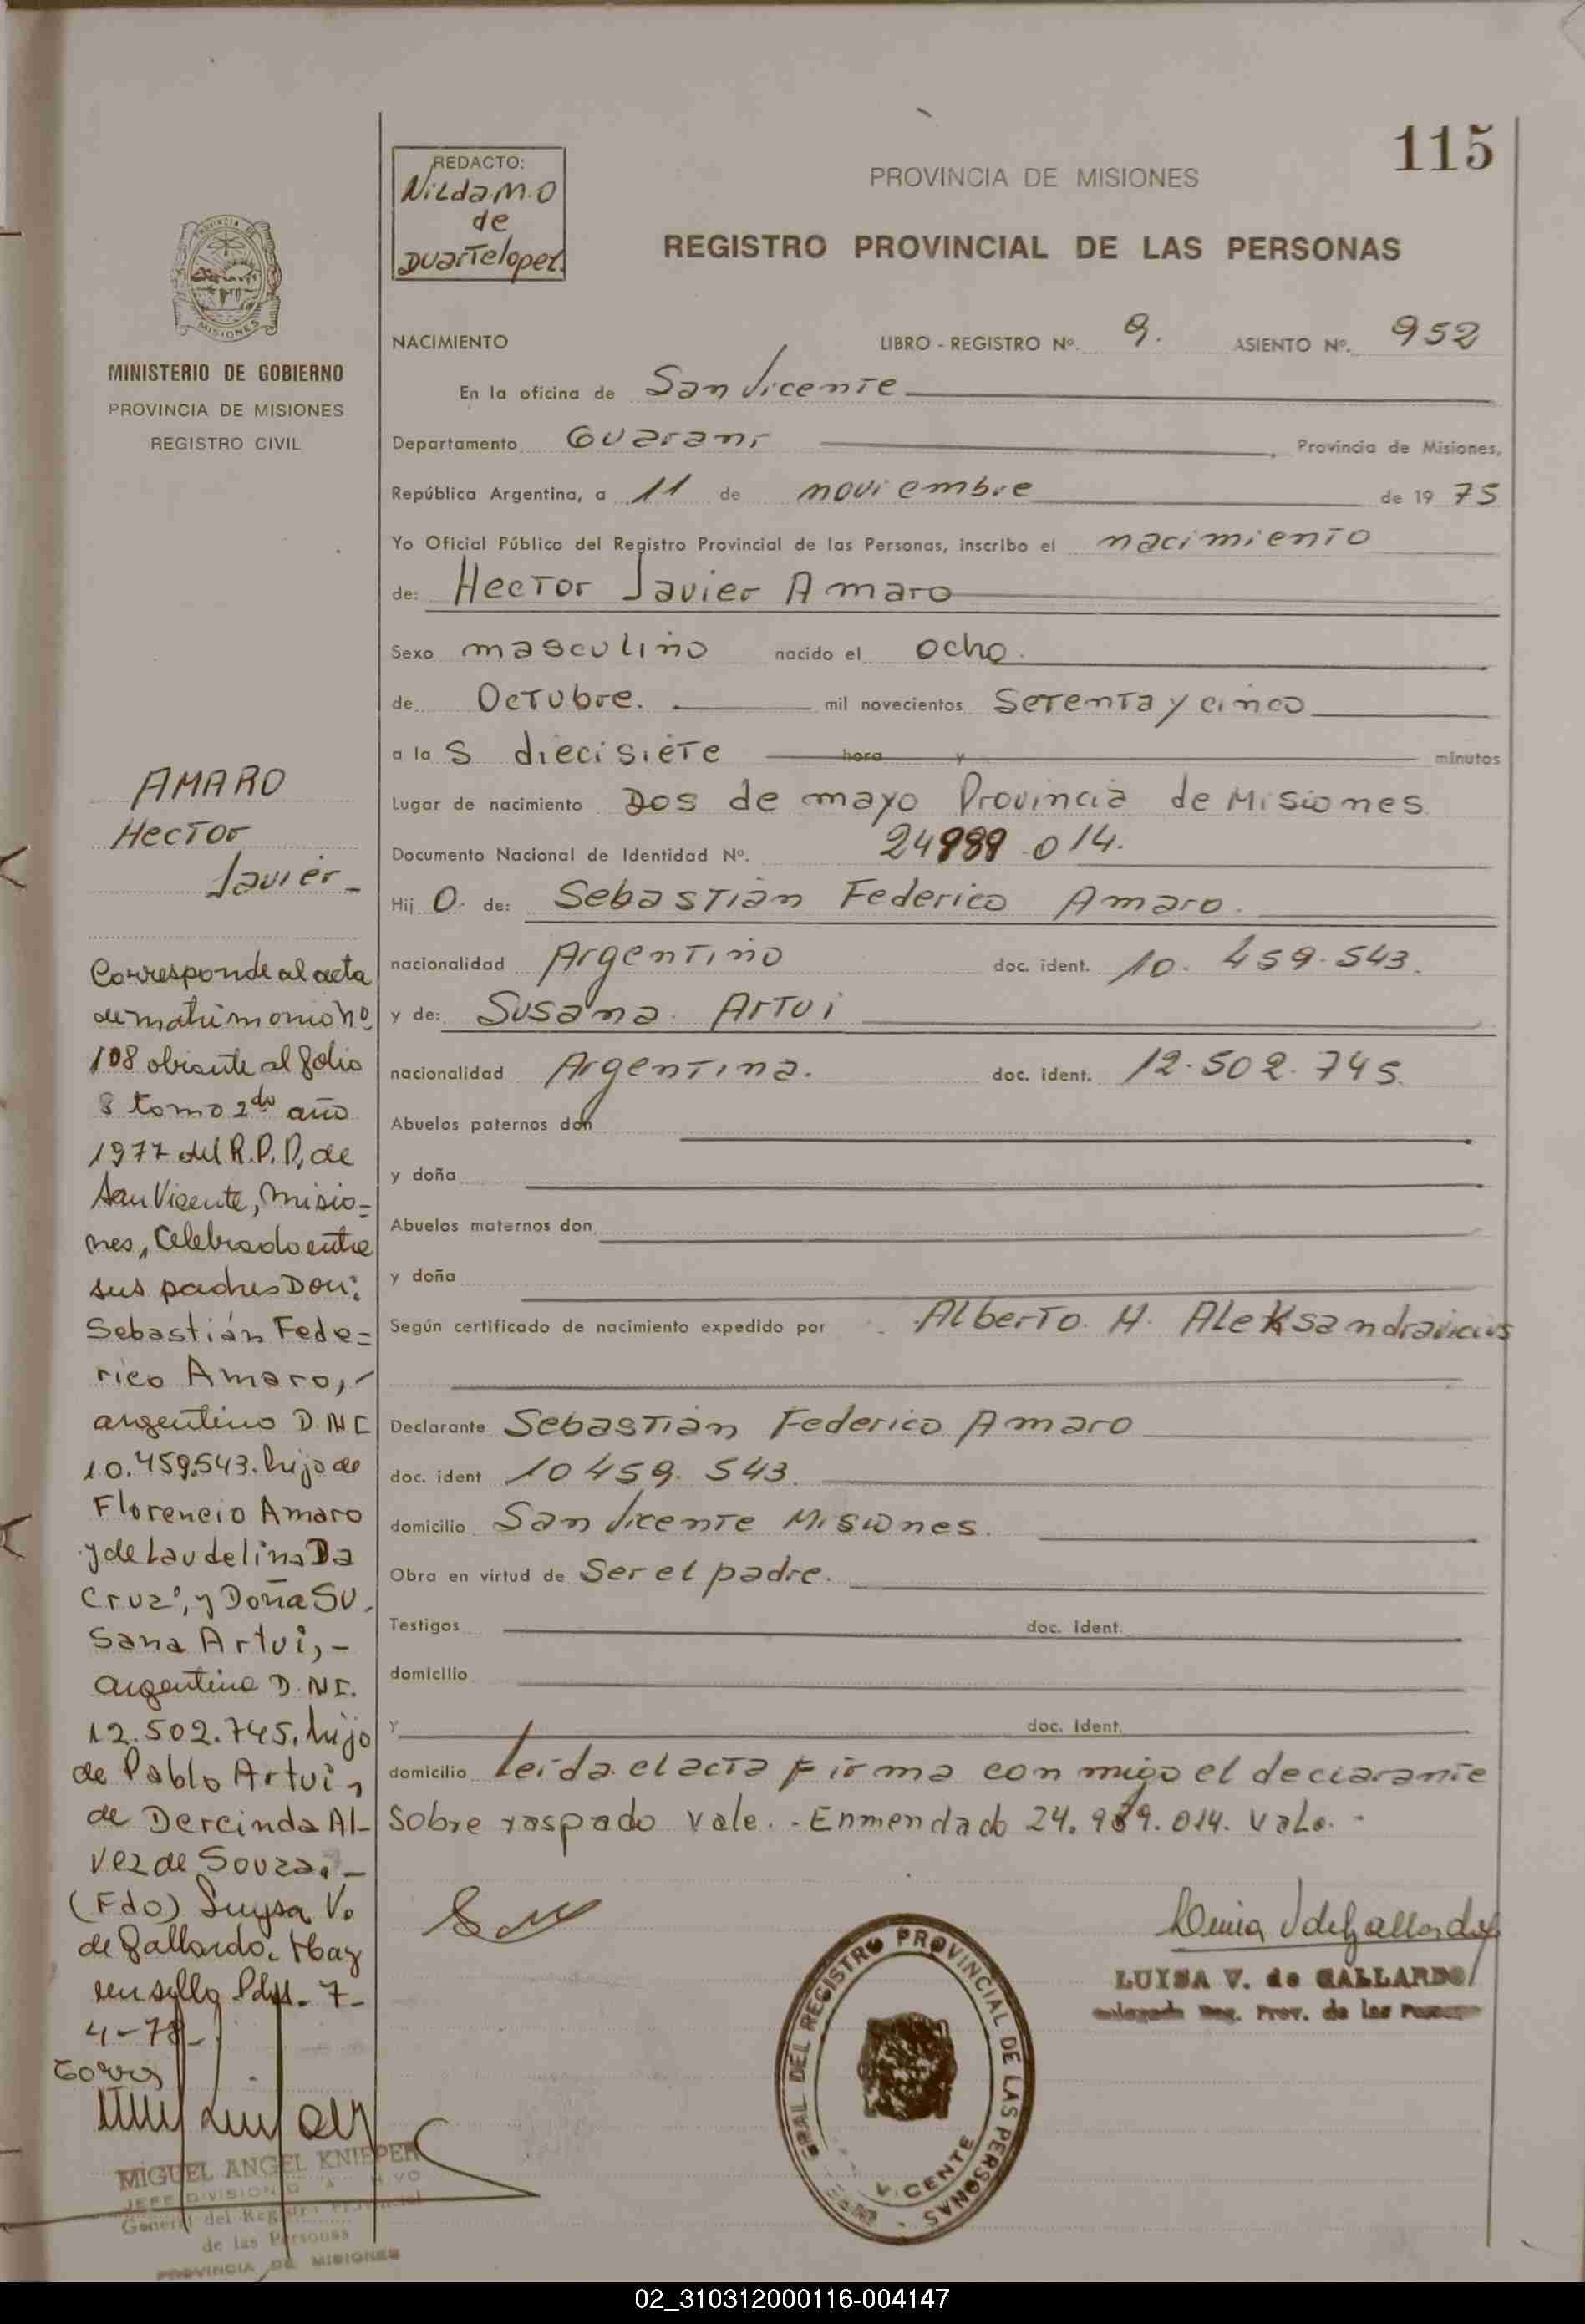 115
REDACTO:
Nilda M.O
de
Duartelopez
PROVINCIA DE MISIONES
REGISTRO PROVINCIAL DE LAS PERSONAS
MINISTERIO DE GOBIERNO
PROVINCIA DE MISIONES
REGISTRO CIVIL
NACIMIENTO LIBRO - REGISTRO Nº. 9. ASIENTO Nº. 952
En la oficina de San Vicente
Departamento Guarani Provincia de Misiones,
República Argentina, a 11 de noviembre de 19 75
Yo Oficial Público del Registro Provincial de las Personas, inscribo el nacimiento
de: Hector Javier Amaro
Sexo masculino nacido el ocho.
de Octubre. mil novecientos setenta y cinco
a la s diecisiete hora y minutos
Lugar de nacimiento Dos de mayo Provincia de Misiones
Documento Nacional de Identidad Nº. 24989 014.
Hij o. de: Sebastián Federico Amaro.
nacionalidad Argentino doc. ident. 10. 459.543.
y de: Susana Artui
nacionalidad Argentina. doc. ident. 12.502.745.
Abuelos paternos don
y doña
Abuelos maternos don
y doña
Según certificado de nacimiento expedido por Alberto. H. Aleksandravicius
Declarante Sebastián Federico Amaro
doc. ident 10 459. 543.
domicilio San Vicente Misiones.
Obra en virtud de Ser el padre.
Testigos doc. Ident.
domicilio
Y doc. Ident.
domicilio leída el acta firma con migo el declarante
Sobre raspado vale. - Enmendado 24.989.014. Vale. -
LUISA V. de GALLARDO
Reg. Prov. de las
GRAL DEL REGISTRO PROVINCIAL DE LAS PERSONAS -
V. CENTE
AMARO
Hector
Javier -
Corresponde al acta
de matrimonio Nº
108 obrante al folio
8 tomo 2do año
1977 del R.P.P. de
San Vicente, Misio=
nes, Celebrado entre
sus padres Don:
Sebastián Fede=
rico Amaro, -
argentino D.N.I
10.459.543. hijo de
Florencio Amaro
y de Laudelina Da
Cruz, y Doña Su.
sana Artui, -
argentina D.N.I.
12.502.745, hijo
de Pablo Artui,
de Dercinda Al-
vez de Souza. -
(Fdo) Luysa V.
de Gallardo. Hay
un sello Pdas. 7-
4-78-
MIGUEL ANGEL KNIEPER
JEFE DIVISION
General del Registro Provincial
de las Personas
PROVINCIA DE MISIONES
02_310312000116-004147